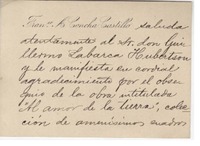 Franco A. Concha Castillo saluda
atentamente al Sr. don Gui
llermo Labarca Hubertson
y le manifiesta su cordial
agradecimiento por el obse
quio de la obra intitulada
"Al amor de la tierra", colec
ción de amenísimos cuadros